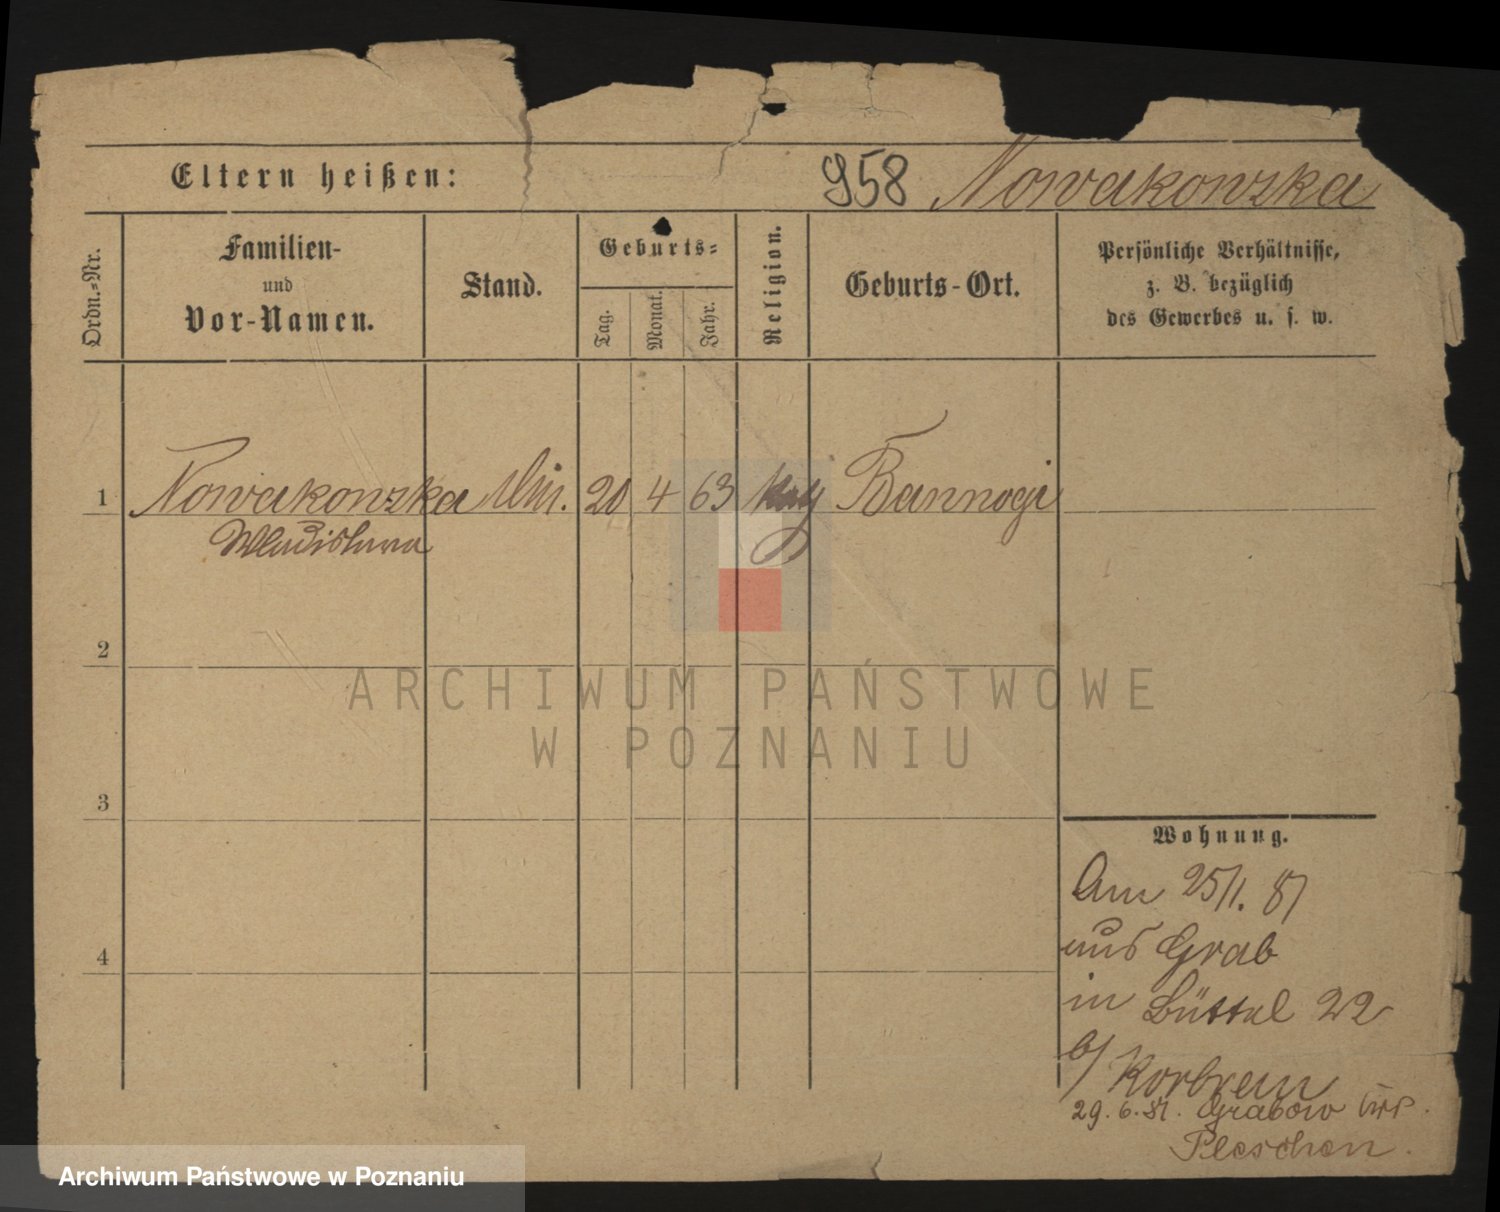 Eltern heißen: 958 Nowakonzka
Ordn.-Nr.
Familien-
und
Vor-Namen.
Stand.
Geburts-
Tag.
Monat.
Jahr.
Religion.
Geburts-Ort.
Persönliche Verhältnisse,
z. B. bezüglich
des Gewerbes u. s. w.
1 Nowakonzka 20 4 63 Bannogi
Wladislawa
2
3
4
ARCHIWUM PAŃSTWOWE
W POZNANIU
Wohnung.
Am 25/1. 87
aus Grab
in Büttel 22
b/ Korbrem
29. 6. 87. Grabow
Pleschen.
Archiwum Państwowe w Poznaniu